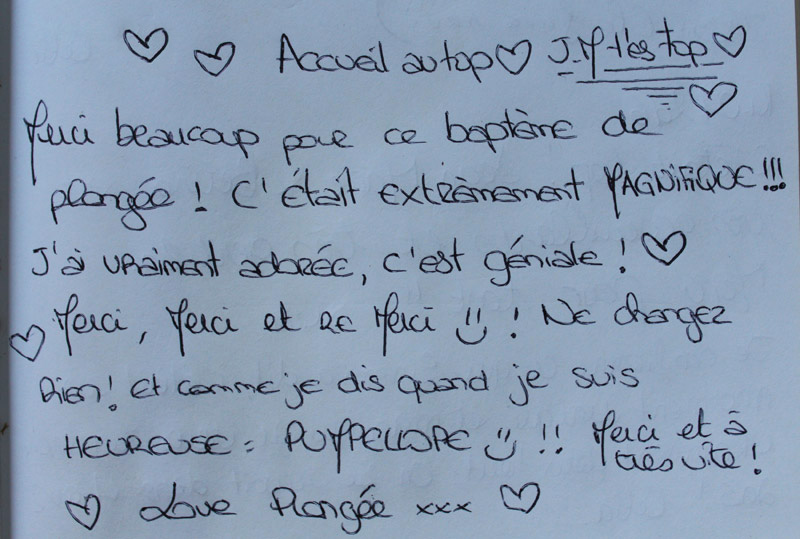 ♡ ♡ Accueil au top ♡ J-M t'es top ♡
Merci beaucoup pour ce baptême de ♡
plongée ! C'était extrêmement MAGNIFIQUE !!!
J'à vraiment adorée, c'est géniale ! ♡
♡ Merci, Merci et RE Merci ☺ ! Ne changez
Rien ! Et comme je dis quand je suis
HEUREUSE : PUMPELLOPE ☺ !! Merci et à
très vite !
♡ Love Plongée xxx ♡